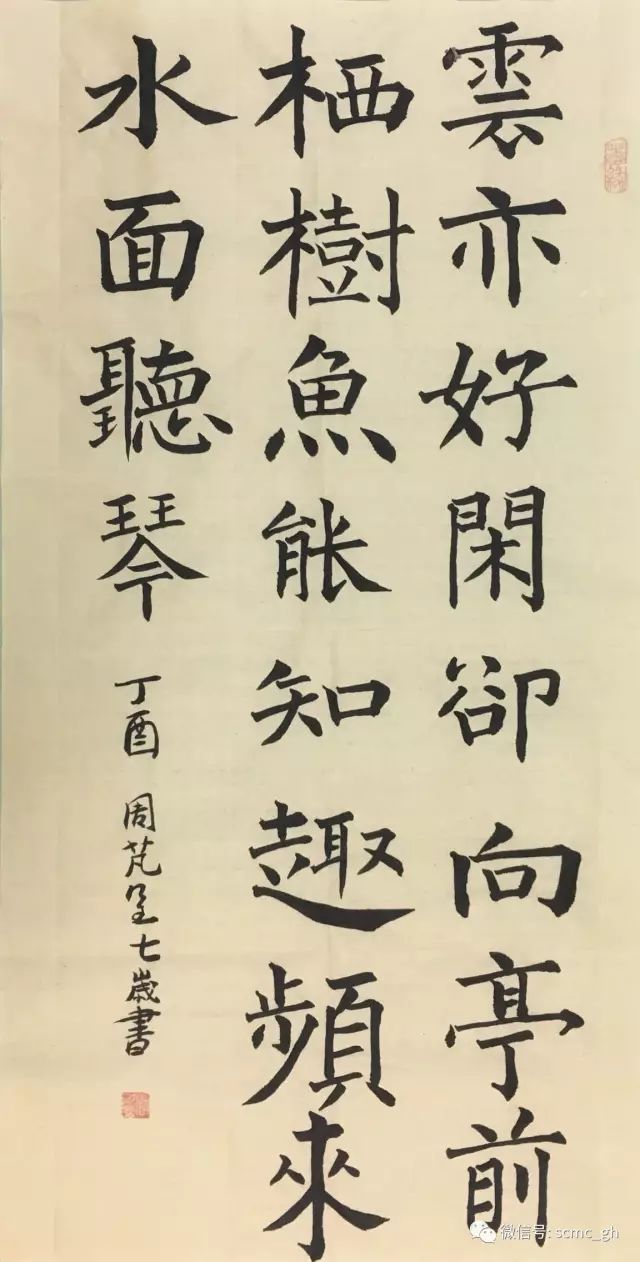 雲亦好閑卻向亭前
栖樹魚能知趣頻來
水面聽琴
丁酉 周芃呈七歲書
微信号: scmc_gh